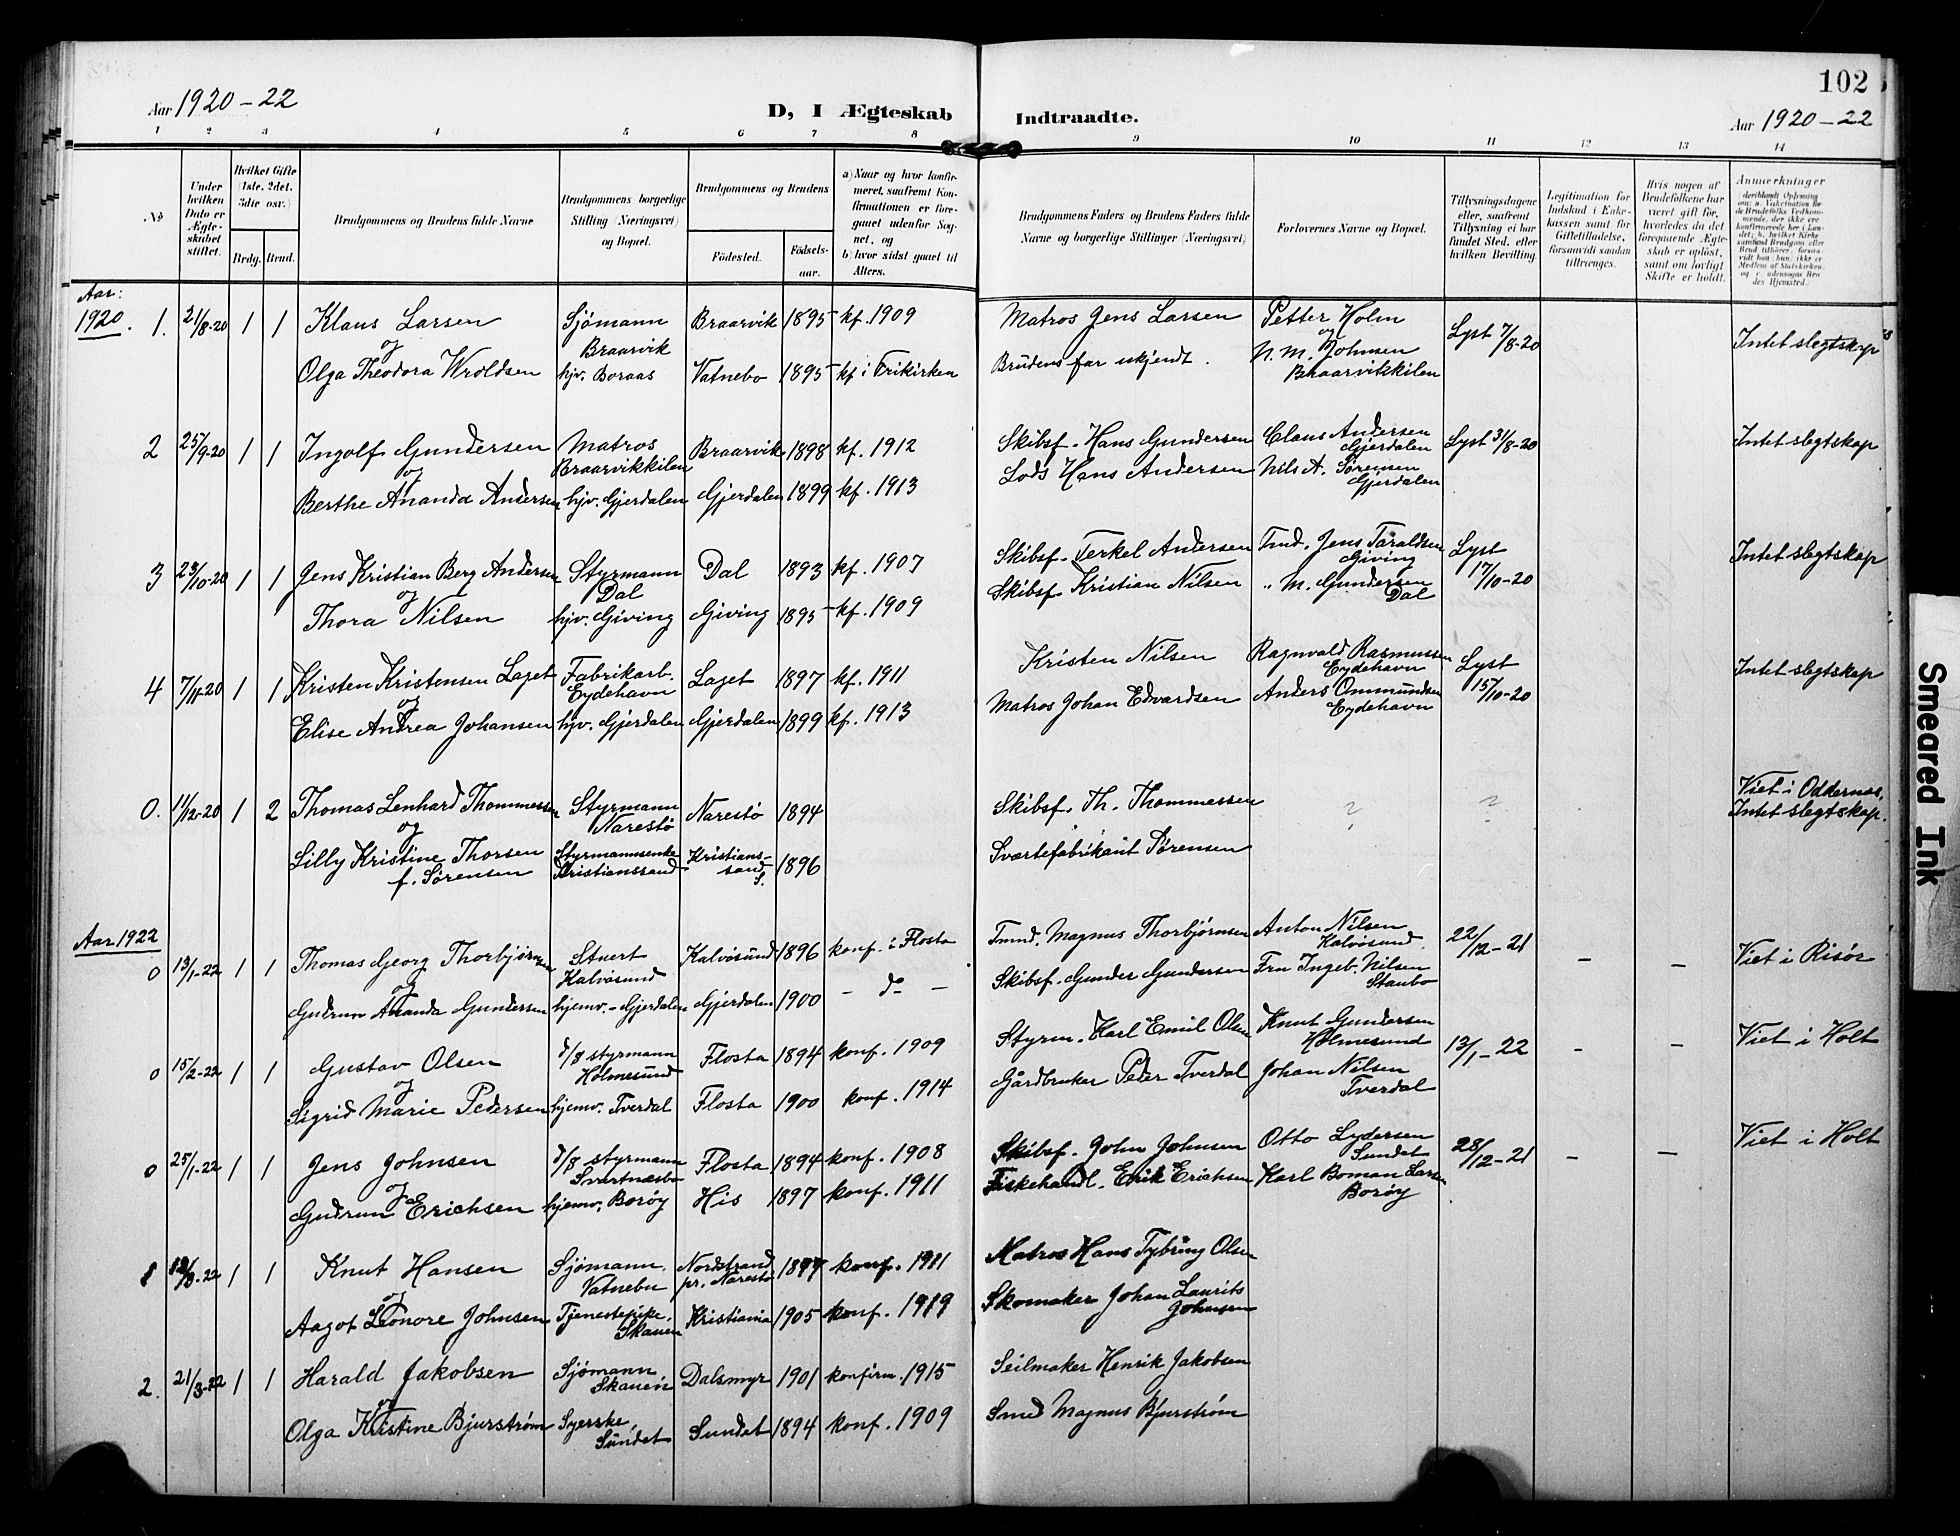 102
Aar 1920-22
D, I Ægteskab Indtraadte.
Aar 1920-22
1 2 3 4 5 6 7 8 9 10 11 12 13 14
No
Under hvilken Dato er Ægteskabet stiftet.
Hvilket Gifte (1ste, 2det, 3dte osv.)
Brdg. Brud.
Brudgommens og Brudens fulde Navne
Brudgommens borgerlige Stilling (Næringsvei) og Bopæl.
Brudgommens og Brudens
Fødested. Fødselsaar.
a) Naar og hvor konfirmeret, saafremt Konfirmationen er foregaaet udenfor Sognet, og
b) hvor sidst gaaet til Alters.
Brudgommens Faders og Brudens Faders fulde Navne og borgerlige Stillinger (Næringsvei)
Forlovernes Navne og Bopæl.
Tillysningsdagene eller, saafremt Tillysning ei har fundet Sted, efter hvilken Bevilling.
Legitimation for Indskud i Enkekassen samt for Giftetilladelse, forsaavidt saadan tiltrænges.
Hvis nogen af Brudefolkene har været gift før, hvorledes da det foregaaende Ægteskab er opløst, samt om lovligt Skifte er holdt.
Anmærkninger
Aar:
1920. 1. 21/8-20 1 1 Klaus Larsen Sjömann Braarvik 1895 kf. 1909 Matros Jens Larsen Petter Holm Lyst 7/8-20 Intet slegtskap
og Braarvik og
Olga Theodora Wroldsen hjv. Boraas Vatnebo 1895 kf i Frikirken Brudens far ukjendt. N. M. Johnsen
Braarvikkilen
2 25/9-20 1 1 Ingolf Gundersen Matros Braarvik 1898 kf. 1912 Skibsf. Hans Gundersen Claus Andersen Lyst 31/8-20 Intet slegtskap
og Braarvikkilen Gjerdalen
Berthe Ananda Andersen hjv. Gjerdalen Gjerdalen 1899 kf. 1913 Lods Hans Andersen Nils A. Sørensen
Gjerdalen
3 23/10-20 1 1 Jens Kristian Berg Andersen Styrmann Dal 1893 kf. 1907 Skibsf. Terkel Andersen Tmd. Jens Taraldsen Lyst 17/10-20 Intet slegtskap
og Dal Giving
Thora Nilsen hjv. Giving Giving 1895 kf. 1909 Skibsf. Kristian Nilsen " M. Gundersen
Dal
4 7/11-20 1 1 Kristen Kristensen Laget Fabrikarb. Laget 1897 kf. 1911 Kristen Nilsen Ragnvald Rasmussen Lyst 15/10-20 Intet slegtskap
og Eydehavn Eydehavn
Elise Andrea Johansen hjv. Gjerdalen Gjerdalen 1899 kf. 1913 Matros Johan Edvardsen Anders Ommundsen
Eydehavn
0. 11/12-20 1 2 Thomas Lenhard Thommessen Styrmann Narestö 1894 Skibsf. Th. Thommessen ? ? Viet i Oddernes,
og Narestö Intet slegtskap.
Lilly Kristine Thorsen Styrmannsenke Kristianssand S. 1896 Sværtefabrikant Sørensen
f. Sørensen Kristianssand
Aar 1922
0 13/1-22 1 1 Thomas Georg Thorbjörnsen Stuert Kalvösund 1896 konf. i Flosta Tmnd. Magnus Thorbjörnsen Anton Nilsen 22/12-21 - - Viet i Risör
og Kalvösund Kalvösund.
Gudrun Ananda Gundersen hjemv.-Gjerdalen Gjerdalen 1900 - do - Skibsf. Gunder Gundersen Fru Ingeb. Nilsen
Staubo
0 15/2-22 1 1 Gustav Olsen d/8 styrmann Flosta 1894 konf. 1909 Styrm. Karl Emil Olsen Knut Gundersen 13/1-22 - - Viet i Holt
og Holmesund Holmesund
Sigrid Marie Pedersen hjemv. Tverdal Flosta 1900 konf. 1914 Gårdbruker Peder Tverdal Johan Nilsen
Tverdal
0 25/1-22 1 1 Jens Johnsen d/8 styrmann Flosta 1894 konf. 1908 Skibsf. John Johnsen Otto Lydersen 28/12-21 - - Viet i Holt
og Svartnæsbo Sundet
Gudrun Erichsen hjemv. Borøy His 1897 konf. 1911 Fiskehandl. Erik Erichsen Karl Boman Larsen
Borøy
1 12/3-22 1 1 Knut Hansen Sjømann. Nordstrand 1897 konf. 1911 Matros Hans Tybring Olsen
og Vatnebu pr. Narestø
Aagot Leonore Johnsen Tjenestepike. Kristiania 1905 konf. 1919 Skomaker Johan Laurits
Skauen Johnsen
2. 21/3-22 1 1 Harald Jakobsen Sjømann Dalsmyr 1901 konfirm. 1915 Seilmaker Henrik Jakobsen
og Skauen
Olga Kristine Bjurstrøm Syerske, Sundet 1894 konf. 1909 Smed Magnus Bjurstrøm
Sundet
Smeared Ink